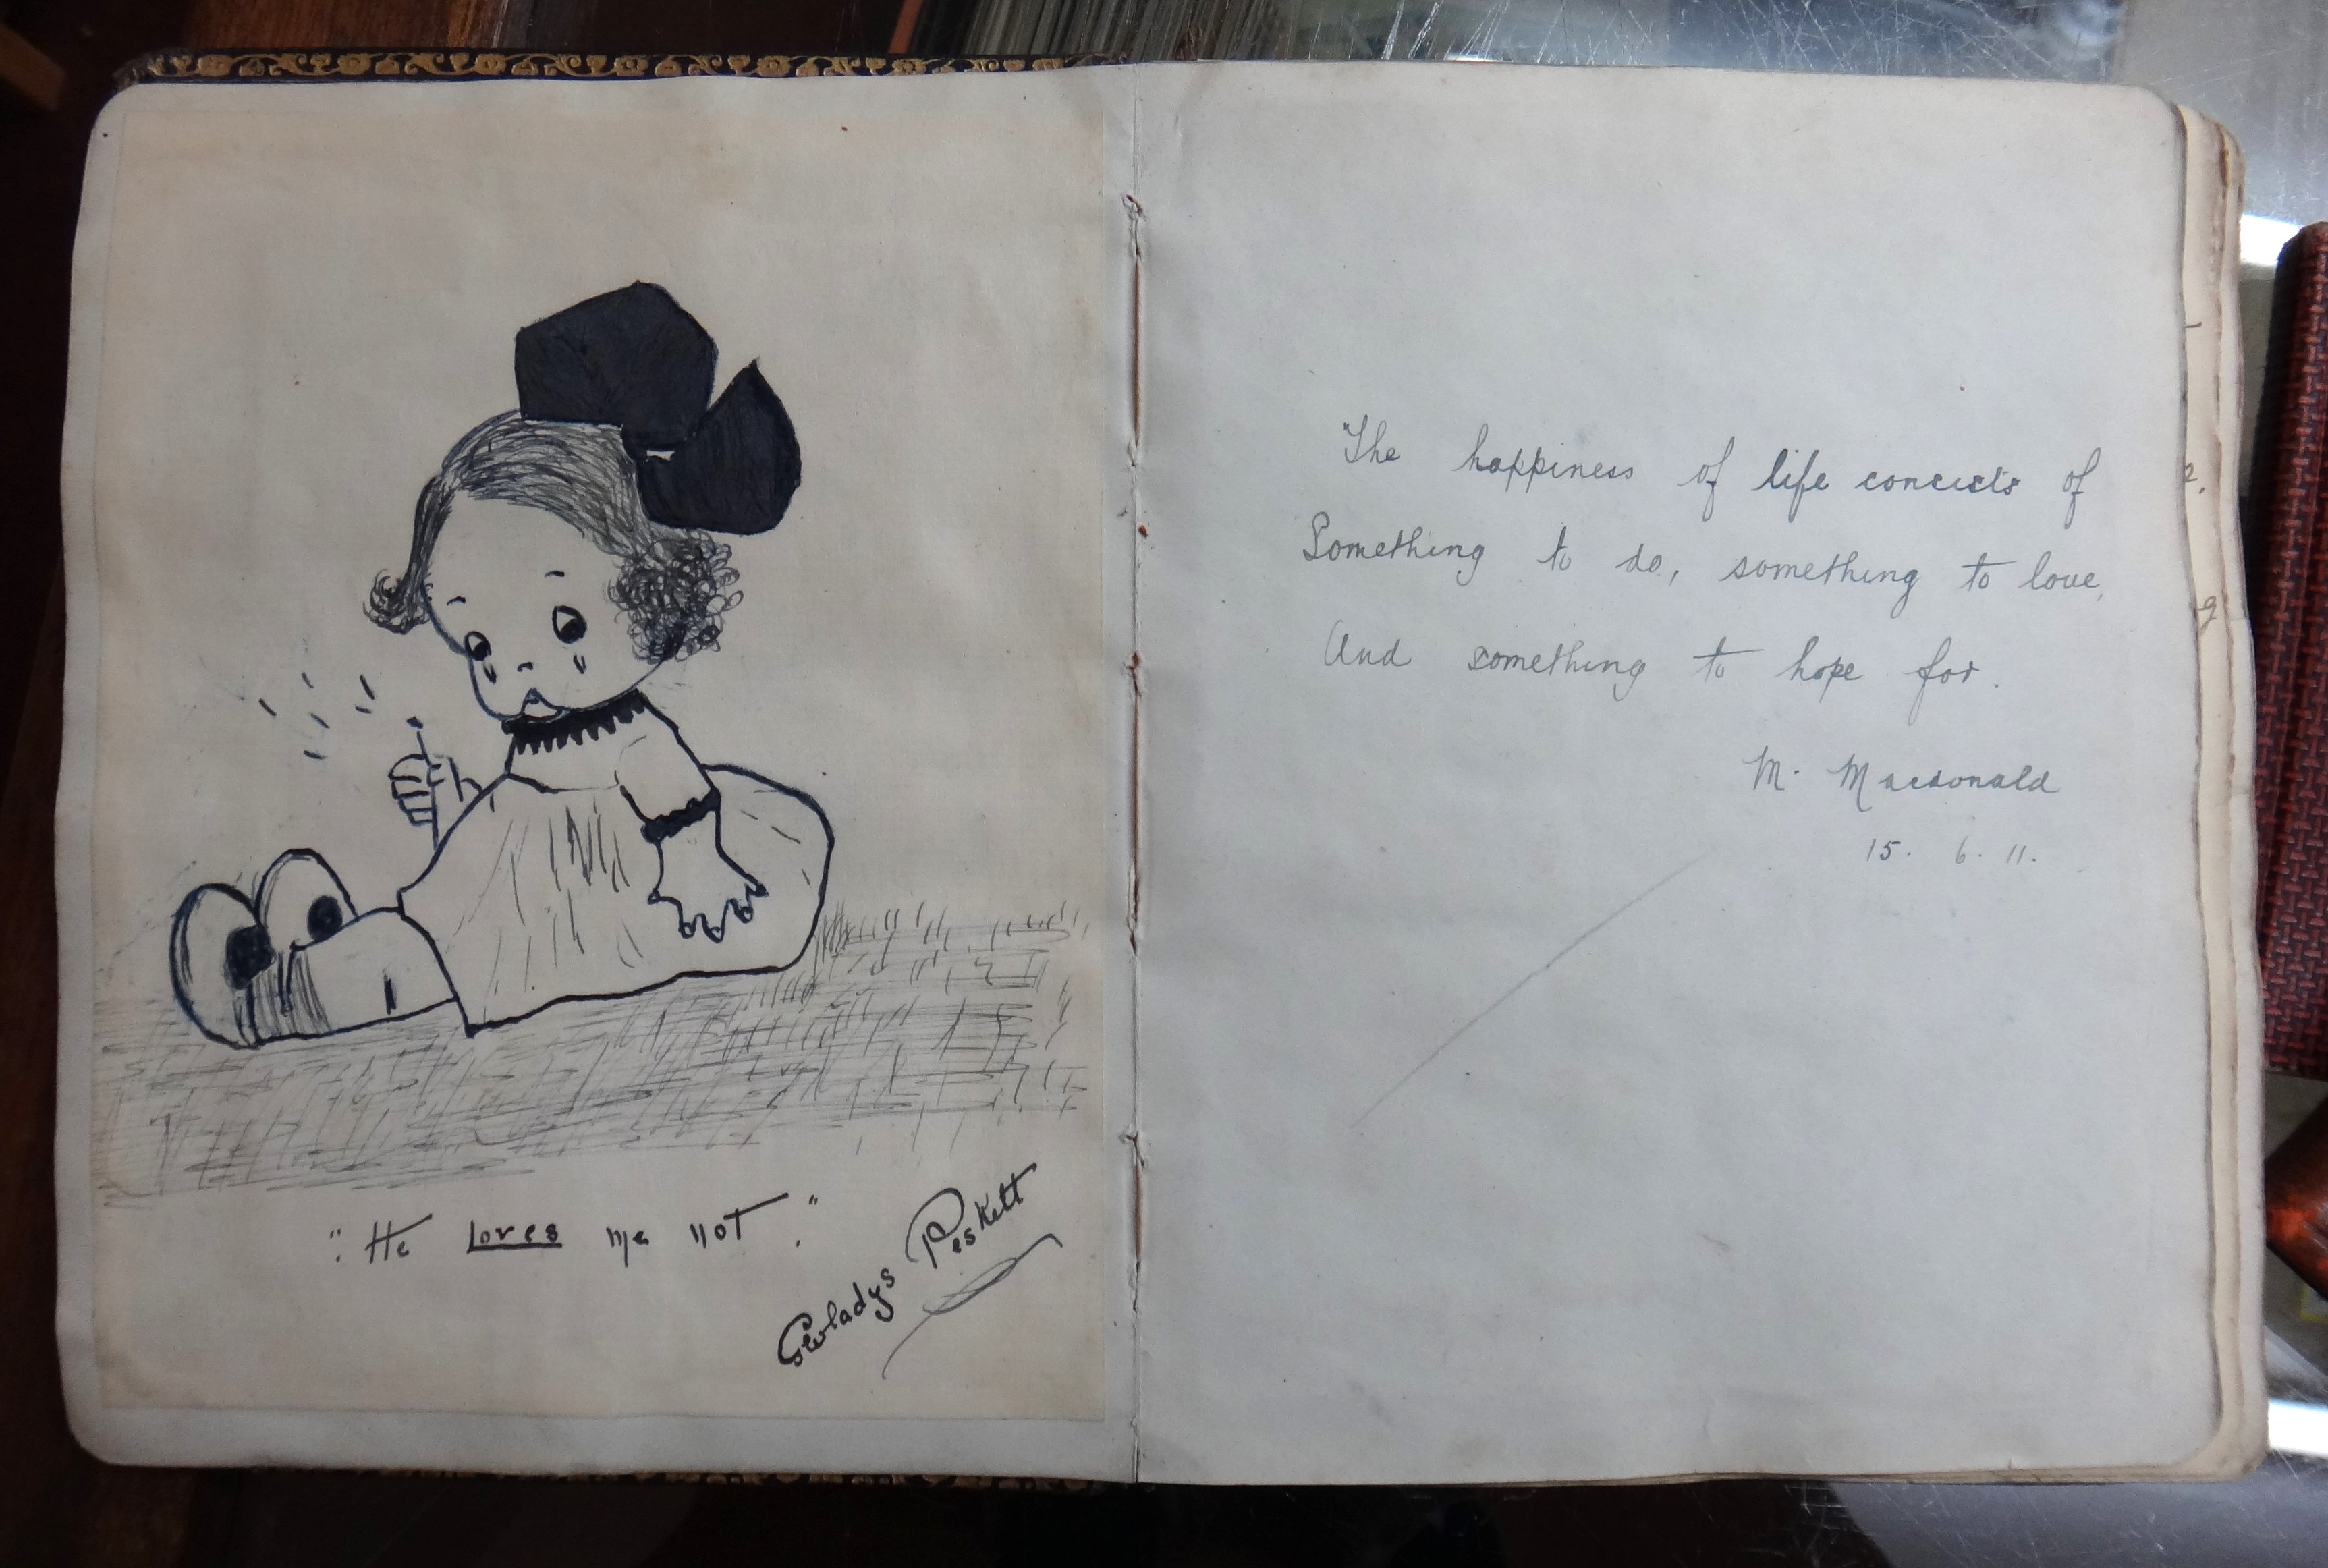 "He loves me not."
Gwladys Peskett
"The happiness of life consists of
Something to do, something to love,
And something to hope for.
M. Macdonald
15. 6. 11.